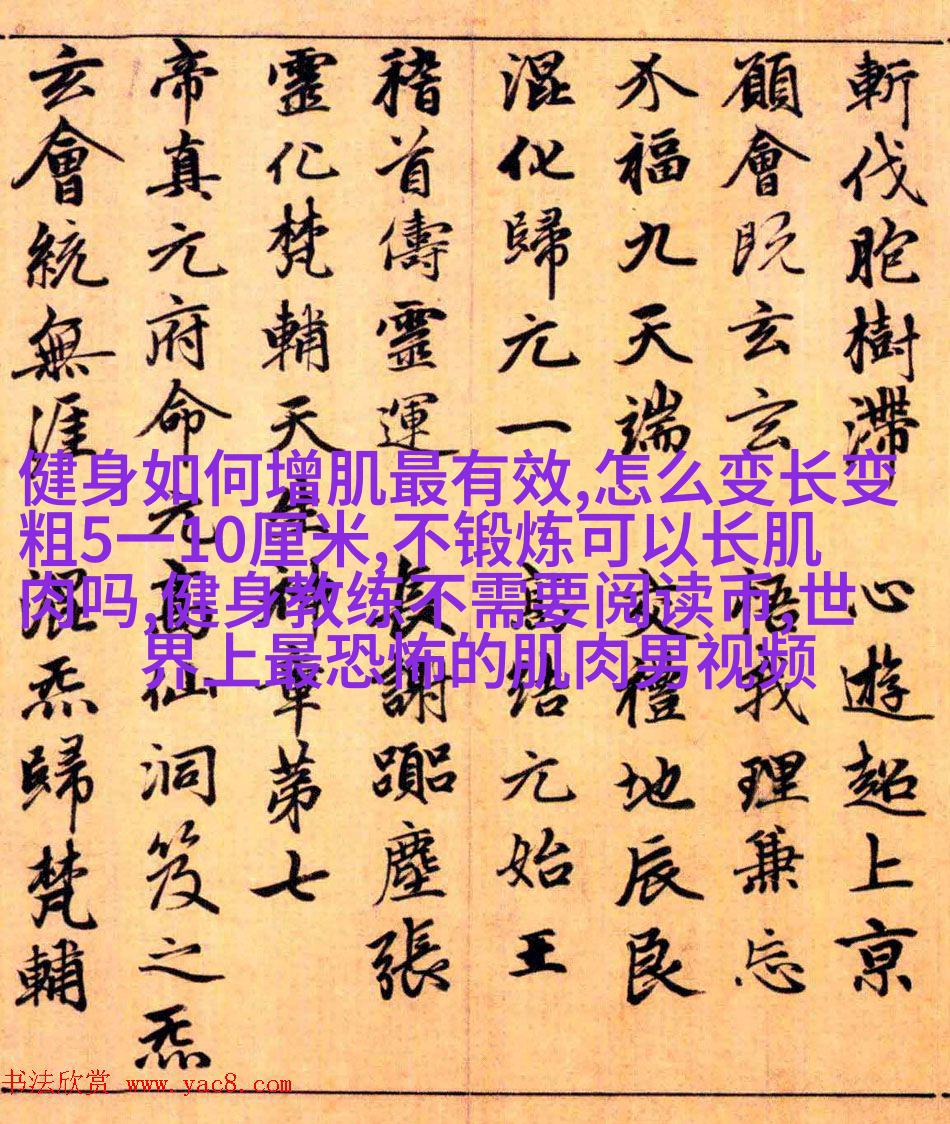 斬伐胞樹滯 心遊超上京
願會既玄玄 悟我理兼忘
介福九天端 交禮地辰良
混化歸元一 高結元始王
稽首儔靈運 長謝囂塵張
靈化梵輔天生神章第七
帝真元府命元高仙洞笈之炁
玄會統無涯 混炁歸梵輔
健身如何增肌最有效,怎么变长变
粗5一10厘米,不锻炼可以长肌
肉吗,健身教练不需要阅读币,世
界上最恐怖的肌肉男视频
书法欣赏 www.yac8.com